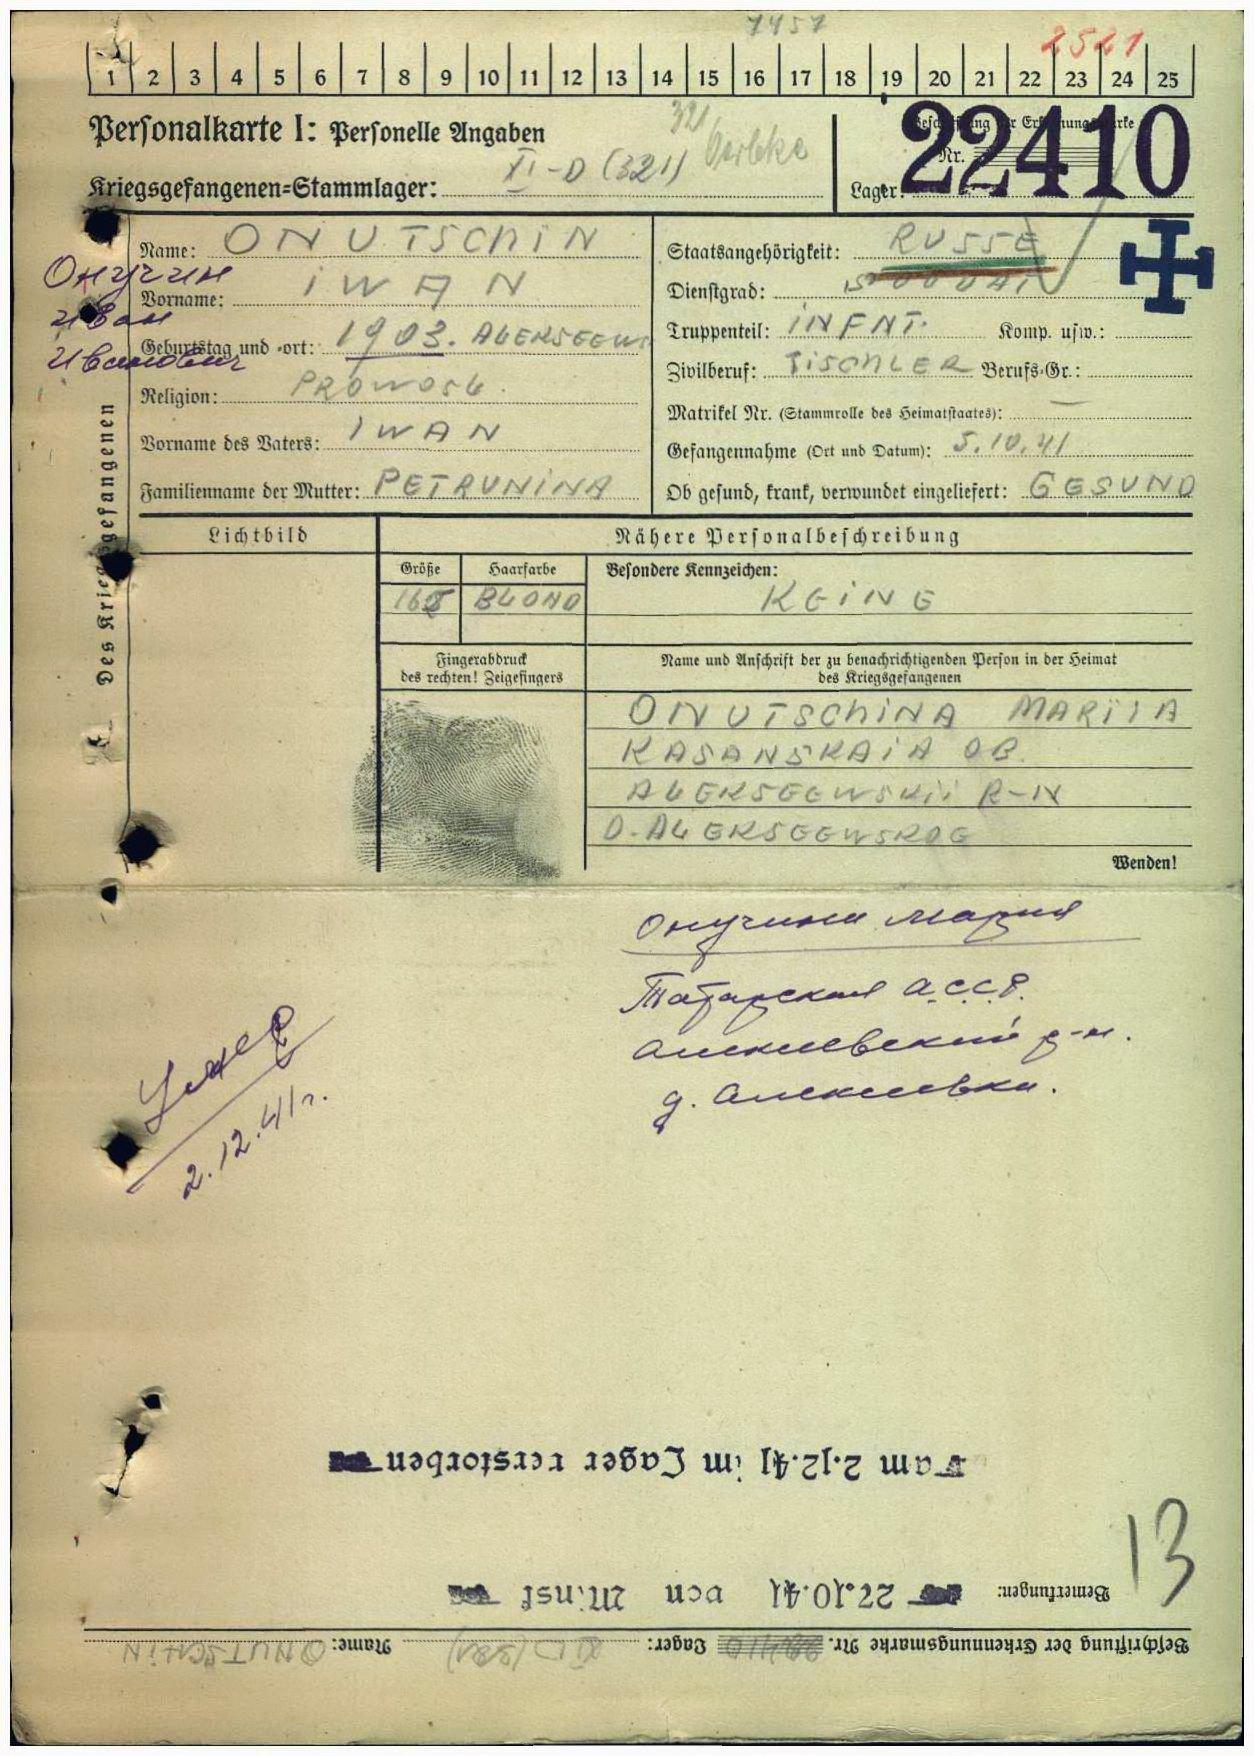 7457
2521
1 2 3 4 5 6 7 8 9 10 11 12 13 14 15 16 17 18 19 20 21 22 23 24 25
Personalkarte I: Personelle Angaben
321
Kriegsgefangenen-Stammlager: XI-D (321)
Beschriftung der Erkennungsmarke
Nr. 22410
Lager:
Des Kriegsgefangenen
Name: ONUTSCHIN
Онучин
Vorname: IWAN
Иван
Geburtstag und -ort: 1903. ALEKSEEWS
Иванович
Religion: PROWOSL.
Vorname des Vaters: IWAN
Familienname der Mutter: PETRUNINA
Staatsangehörigkeit: RUSSE
Dienstgrad: SOLDAT
Truppenteil: INFNT. Komp. usw.:
Zivilberuf: TISCHLER Berufs-Gr.:
Matrikel Nr. (Stammrolle des Heimatstaates): —
Gefangennahme (Ort und Datum): 5.10.41
Ob gesund, krank, verwundet eingeliefert: GESUND
Lichtbild
Nähere Personalbeschreibung
Größe Haarfarbe Besondere Kennzeichen:
168 BLOND KEINE
Fingerabdruck
des rechten! Zeigefingers
Name und Anschrift der zu benachrichtigenden Person in der Heimat
des Kriegsgefangenen
ONUTSCHINA MARIIA
KASANSKAIA OB.
ALEKSEEWSKII R-N
D. ALEKSEEWSKOE
Wenden!
Онучина Мария
Татарская А.С.С.Р.
Алексеевский р-н.
д. Алексеевка.
Умер
2.12.41г.
am 2.12.41 im Lager verstorben
13
Bemerkungen: 27.10.41 von Minsk
Beschriftung der Erkennungsmarke Nr. 22410 Lager: XI D (321) Name: ONUTSCHIN